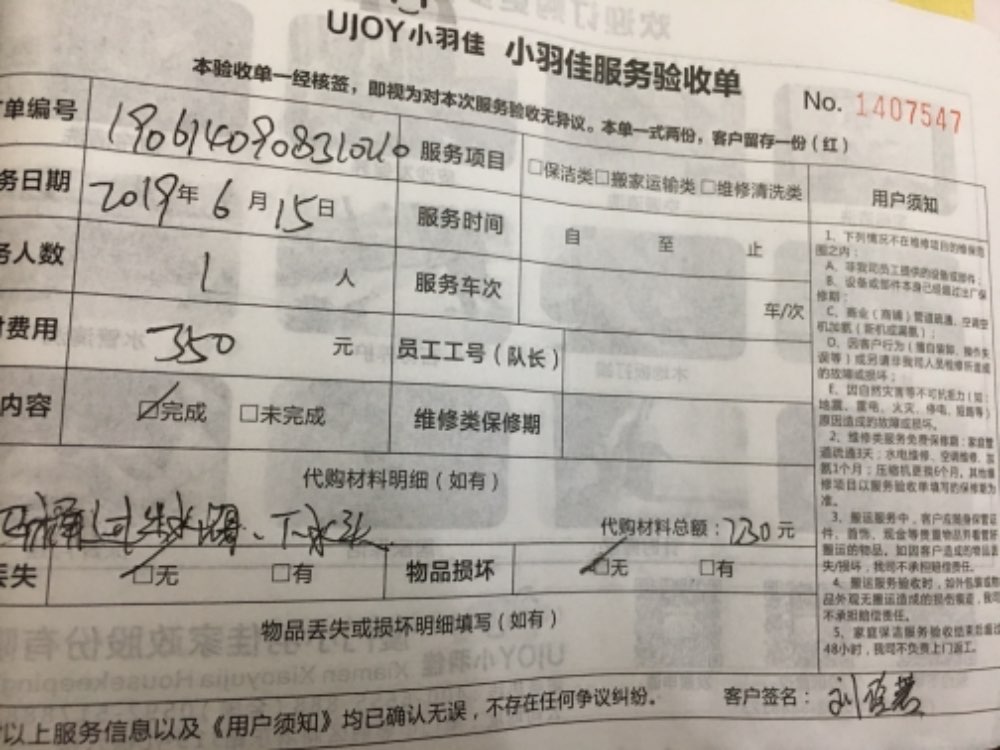 UJOY小羽佳 小羽佳服务验收单
本验收单一经核签，即视为对本次服务验收无异议。本单一式两份，客户留存一份（红）
No. 1407547
单编号 服务项目 □保洁类□搬家运输类□维修清洗类 用户须知
务日期 2019年6月15日 服务时间 自 至 止
务人数 1 人 服务车次 车/次
费用 350 元 员工工号（队长）
内容 ☑完成 □未完成 维修类保修期
代购材料明细（如有）
下水头 代购材料总额：730元
丢失 ☑无 □有 物品损坏 ☑无 □有
物品丢失或损坏明细填写（如有）
以上服务信息以及《用户须知》均已确认无误，不存在任何争议纠纷。 客户签名：
1、下列情况不在维修项目的维保范
围之内：
A、非我司员工提供的设备或部件；
B、设备或部件本身已经超过出厂保
修期；
C、商业（商铺）管道疏通、空调空
机加氨（新机或漏氨）；
D、因客户行为（擅自装卸、操作失
误等）或另请非我司人员检修所造成
的故障或损坏；
E、因自然灾害等不可抗拒力（如：
地震、雷电、火灾、停电、短路等）
原因造成的故障或损坏。
2、维修类服务免费保修期：家庭管
道疏通3天；水电维修、空调维修、加
氨1个月；压缩机更换6个月，其他维
修项目以服务验收单填写的保修期为
准。
3、搬运服务中，客户应随身保管证
件、首饰、现金等贵重物品并看管好
搬运的物品。如因客户造成的物品丢
失/损坏，我司不承担赔偿责任。
4、搬运服务验收时，如外包装或物
品外观无搬运造成的损伤痕迹，我司
不承担赔偿责任。
5、家庭保洁服务验收结束后超过
48小时，我司不负责上门返工。